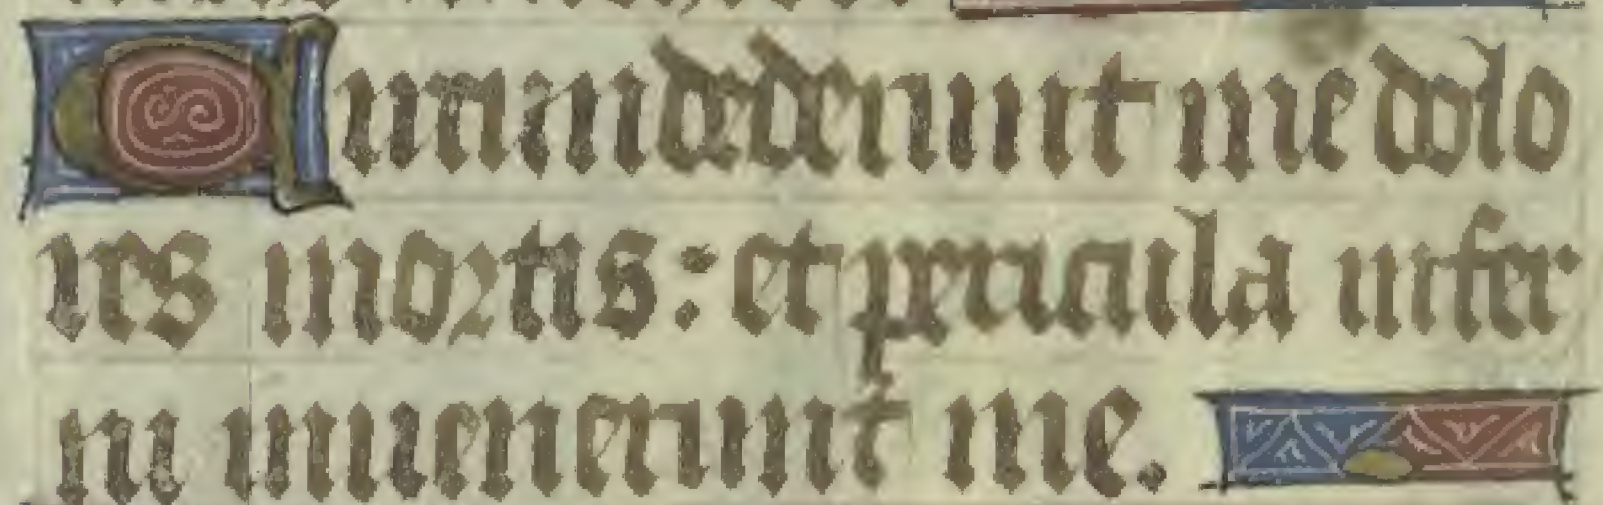 Circundederunt me dolo
res mortis: et pericula infer
ni invenerunt me.